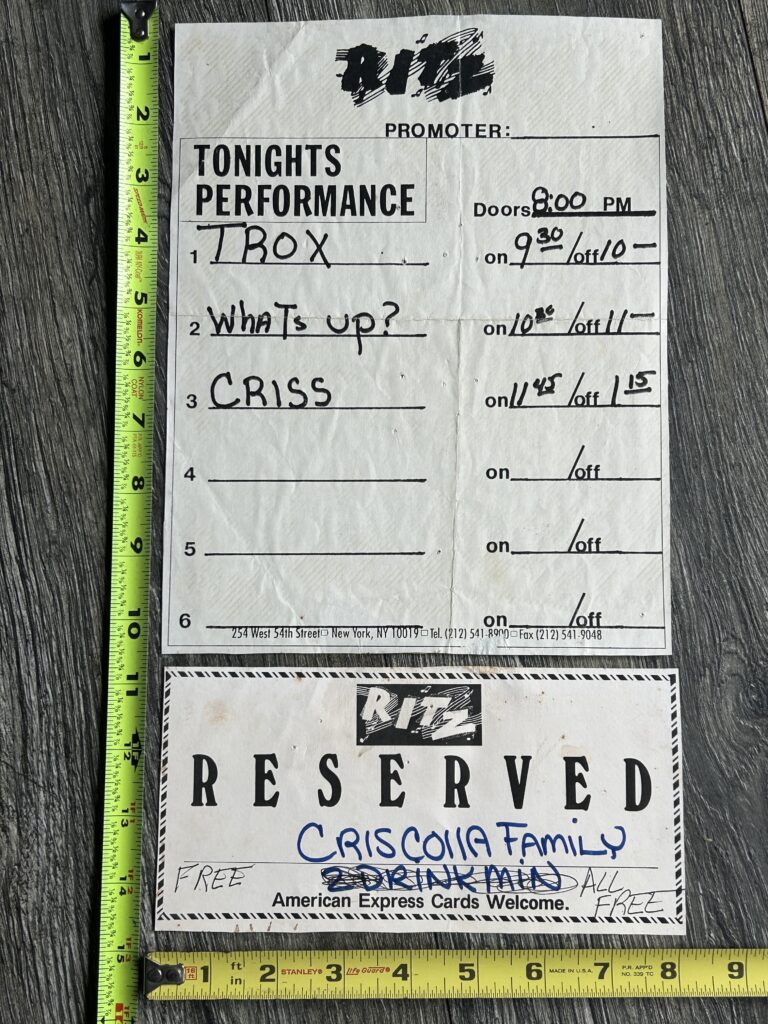 RITZ
PROMOTER:
TONIGHTS
PERFORMANCE
Doors 8:00 PM
1 TROX on 9 30 /off 10 —
2 WhATs up? on 10 30 /off 11 —
3 CRISS on 11 45 /off 1 15
4 on /off
5 on /off
6 on /off
254 West 54th Street □ New York, NY 10019 □ Tel. (212) 541-8900 □ Fax (212) 541-9048
RITZ
RESERVED
CRISCOllA FAMILY
FREE 2 DRINK MIN ALL
American Express Cards Welcome. FREE
1 2 3 4 5 6 7 8 9 10 11 12 13 14 15
1 ft in 2 STANLEY® 3 Life Guard® 4 5 6 MADE IN U.S.A. 7 P.R. APP'D NO. 339 TC 8 9